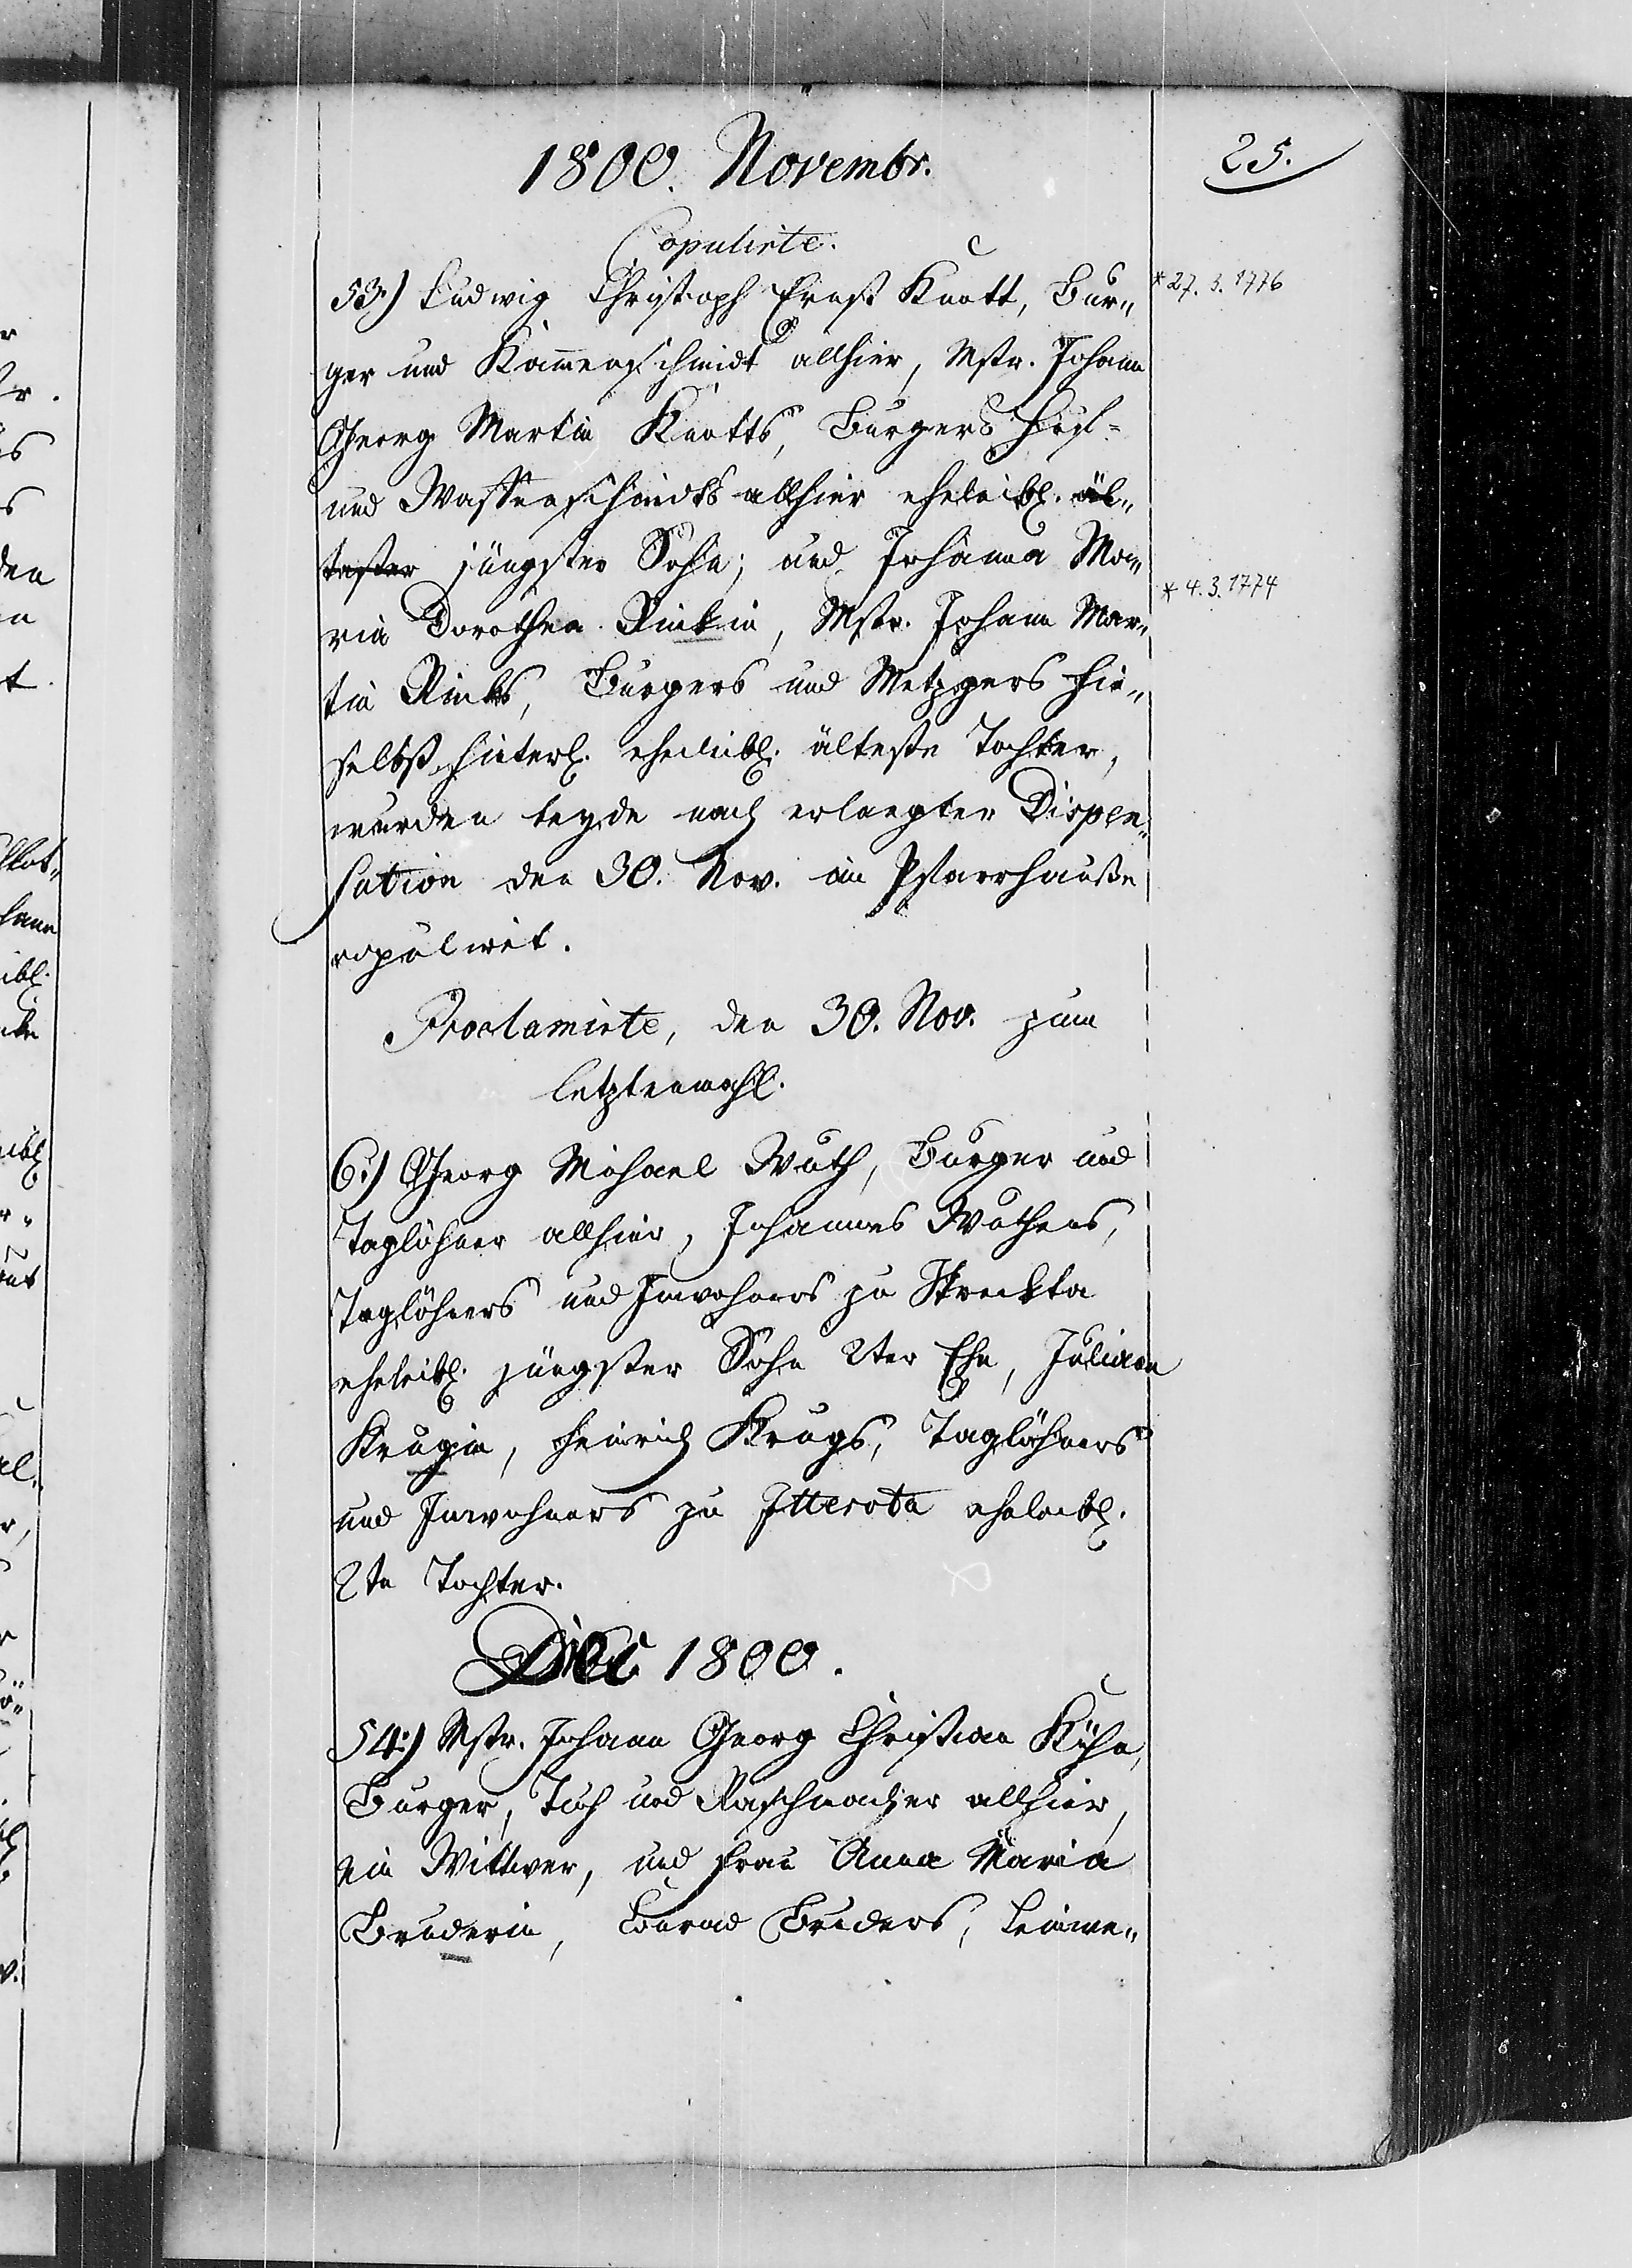 1800. Novembr.
25.
Copulirte.
53.) Ludwig Christoph Ernst Knott, Bur„
* 27. 3. 1776
ger und Hammerschmidt allhier, Mstr. Johann
Georg Martin Knotts, Burgers Huf-
und Waffenschmidts allhier eheleibl. äl„
tester jüngster Sohn; und Johanna Ma„
* 4. 3. 1774
ria Dorothea Rinkin, Mstr. Johann Mar„
tin Rinks, Burgers und Metzgers hie„
selbst hinterl. eheleibl. älteste Tochter,
wurden beyde nach erlangter Dispen„
sation den 30. Nov. im Pfarrhauße
copulirt.
Proclamirte, den 30. Nov. zum
letztenmahl.
6.) Georg Michael Wuth, Burger und
Taglöhner allhier, Johannes Wuthens,
Taglöhners und Inwohners zu Streckta
eheleibl. jüngster Sohn 2ter Ehe, Juliana
Krugin, Heinrich Krugs, Taglöhners
und Inwohners zu Ifterota eheleibl.
2te Tochter.
Dec 1800.
54.) Mstr. Johann Georg Christian Kühn,
Burger, Tuch und Raschmacher allhier,
ein Wittwer, und Frau Anna Maria
Bruderin, Conrad Bruders, Leinwe„